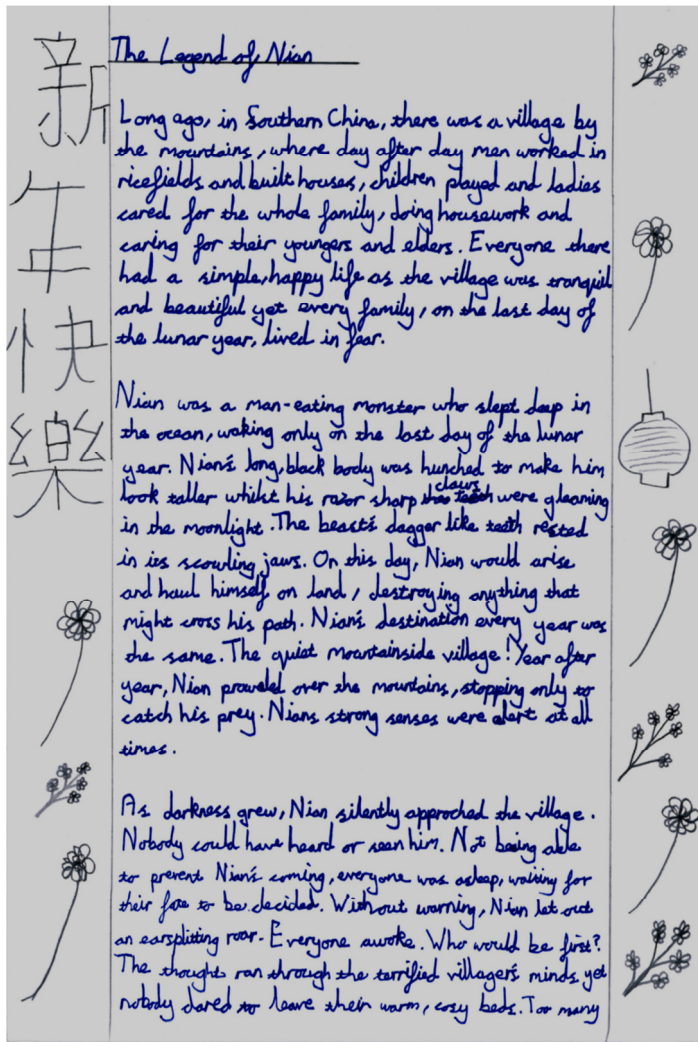 新
年
快
樂
The Legend of Nian
Long ago, in Southern China, there was a village by
the mountains, where day after day men worked in
ricefields and built houses, children played and ladies
cared for the whole family, doing housework and
caring for their youngers and elders. Everyone there
had a simple, happy life as the village was tranquil
and beautiful yet every family, on the last day of
the lunar year, lived in fear.
Nian was a man-eating monster who slept deep in
the ocean, waking only on the last day of the lunar
year. Nian's long, black body was hunched to make him
look taller whilst his razor sharp claws were gleaming
in the moonlight. The beast's dagger like teeth rested
in its scowling jaws. On this day, Nian would arise
and haul himself on land, destroying anything that
might cross his path. Nian's destination every year was
the same. The quiet mountainside village! Year after
year, Nian prowled over the mountains, stopping only to
catch his prey. Nians strong senses were alert at all
times.
As darkness grew, Nian silently approched the village.
Nobody could have heard or seen him. Not being able
to prevent Nian's coming, everyone was asleep, waiting for
their fate to be decided. Without warning, Nian let out
an earsplitting roar. Everyone awoke. Who would be first?
The thought ran through the terrified villager's minds, yet
nobody dared to leave their warm, cosy beds. Too many